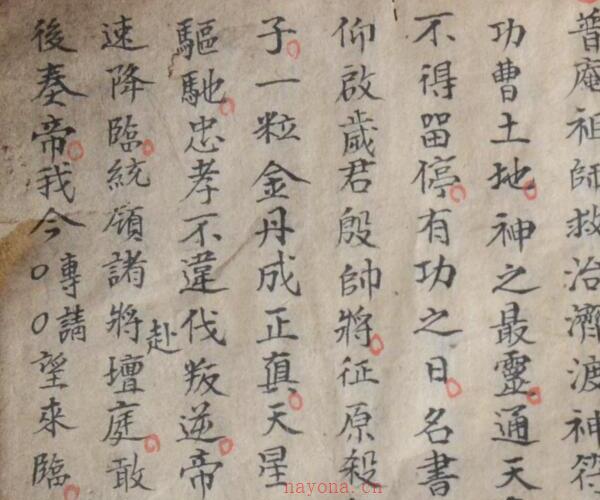 普庵祖師救治濟渡神符
功曹土地。神之最靈。通天
不得畱停。有功之日。名書
仰啟歲君殷帥將。征原殺
子。一粒金丹成正真。天星
驅馳。忠孝不違伐叛逆。帝
速降臨。統領諸將赴壇庭。敢
後奏帝。我今〇〇專請望來臨。
nayona.cn